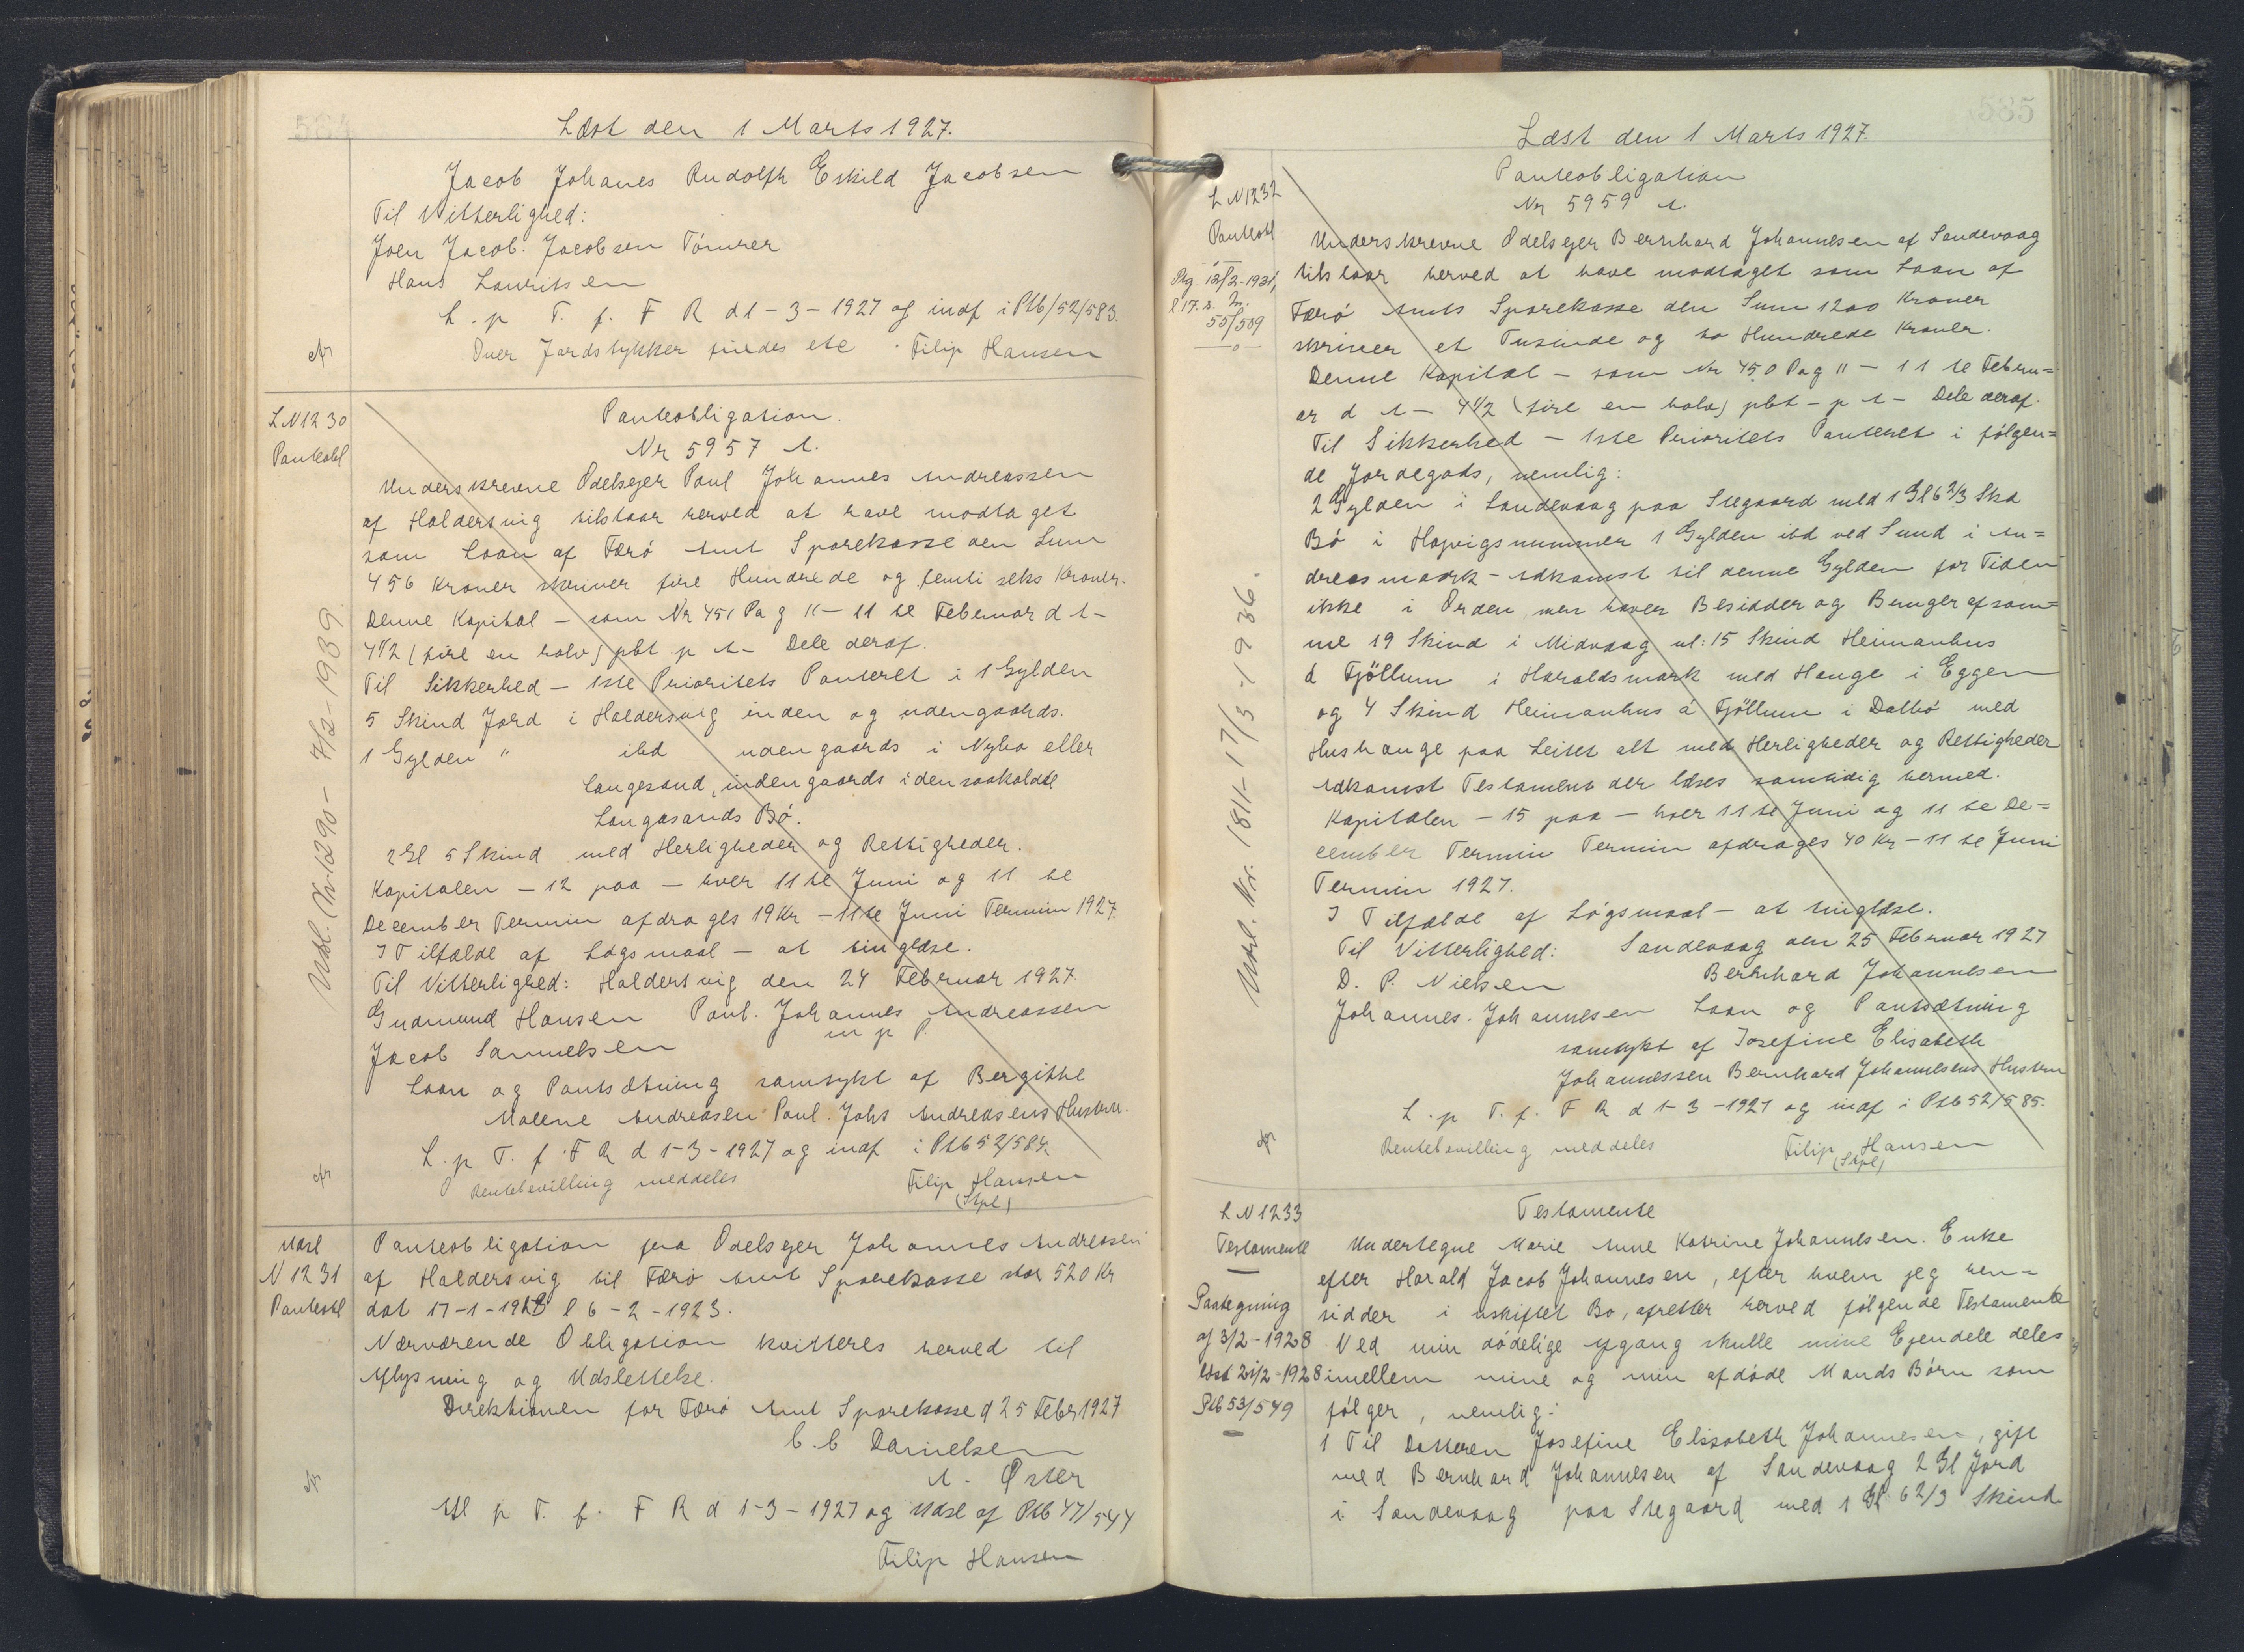 584
Læst den 1 Marts 1927.
Jacob Johanes Rudolph Eskild Jacobsen
Til Vitterlighed:
Joen Jacob. Jacobsen Tömrer
Hans Lauritsen
L. p T. f. F R d 1-3-1927 og indf i Ptb/52/583.
Over Jordstykker findes etc. Filip Hansen
L N 1230
Panteobl
Panteobligation.
Nr 5957 A.
Underskrevne Odelsejer Poul Johannes Andreassen
af Haldersvig tilstaar herved at have modtaget
som Laan af Færö Amt Sparekasse den Sum
456 Kroner skriver fire Hundrede og femti seks Kroner.
Denne Kapital - som Nr 451 Pag 11 - 11 te Februar d A -
4 1/2 (fire en halv) pbt p A - Dele deraf.
Til Sikkerhed - 1ste Prioritets Panteret i 1 Gylden
5 Skind Jord i Haldersvig inden og udengaards.
1 Gylden " ibd udengaards i Nybo eller
Langesand, indengaards i den saakaldte
Langasands Bö.
2 Gl 5 Skind med Herligheder og Rettigheder.
Kapitalen - 12 paa - hver 11 te Juni og 11 te
December Termin afdrages 19 Kr - 11 te Juni Termin 1927.
I Tilfælde af Lögsmaal - at tinglæse.
Til Vitterlighed: Haldersvig den 24 Februar 1927.
Gudmund Hansen Poul. Johannes Andreassen
m p P.
Jacob Samuelsen
Laan og Pantsætning samtykt af Bergitte
Malene Andreasen Poul. Johs Andreasens Hustru.
L. p T. f. F R d 1-3-1927 og indf i Ptb 52/584.
Rentebevilling meddeles Filip Hansen
(Stpl)
Udsl. Nr. 1290 - 7/2 - 1939.
Udsl
N 1231
Panteobl
Panteobligation fra Odelsejer Johannes Andreasen
af Haldersvig til Færö Amt Sparekasse stor 520 Kr
dat 17-1-1923 l 6-2-1923.
Nærværende Obligation kvitteres herved til
Aflysning og Udslettelse.
Direktionen for Færö Amt Sparekasse d 25 Febr 1927
C. C Danielsen
A. Øster
Afl p T. f. F R d 1-3-1927 og Udsl af Ptb 47/544
Filip Hansen
585
Læst den 1 Marts 1927.
L N 1232
Panteobl
Ptg. 12/2-1931,
l. 17. s. M.
55/509
Panteobligation
Nr 5959 A.
Underskrevne Odelsejer Bernhard Johannesen af Sandevaag
tilstaar herved at have modtaget som Laan af
Færö Amts Sparekasse den Sum 1200 Kroner
skriver et Tusinde og to Hundrede Kroner.
Denne Kapital - som Nr 450 Pag 11 - 11 te Febru=
ar d A - 4 1/2 (fire en halv) pbt - p A - Dele deraf.
Til Sikkerhed - 1ste Prioritets Panteret i fölgen=
de Jordegods, nemlig:
2 Gylden i Sandevaag paa Stegaard med 1 Gl 6 2/3 Skd
Bö i Hapvigsnummer 1 Gylden ibd ved Sund i An=
dreasmark - Adkomst til denne Gylden for Tiden
ikke i Orden men haver Besidder og Bruger af sam=
me 19 Skind i Midvaag nl: 15 Skind Heimanhus
á Fjöllum i Haraldsmark med Hauge i Eggen
og 4 Skind Heimanhus á Fjöllum i Dalbö med
Hushauge paa Leitet alt med Herligheder og Rettigheder
Adkomst Testament der læses samtidig hermed.
Kapitalen - 15 paa - hver 11 te Juni og 11 te De=
cember Termin Termin afdrages 40 Kr - 11 te Juni
Termin 1927.
I Tilfælde af Lögsmaal - at tinglæse.
Til Vitterlighed: Sandevaag den 25 Februar 1927
D. P. Nielsen Bernhard Johannesen
Johannes. Johannesen Laan og Pantsætning
samtykt af Josefine Elisabeth
Johannessen Bernhard Johannesens Hustru
L. p T. f. F R d 1-3-1927 og indf i Ptb 52/585.
Rentebevilling meddeles Filip Hansen
(Stpl)
Udsl. Nr. 1811 - 17/3 - 1936.
L N 1233
Testamente
Paategning
af 3/2-1928
læst 21/2-1928
Ptb 53/549
Testamente
Undertegne Marie Anne Katrine Johannesen. Enke
efter Harald Jacob Johannesen, efter hvem jeg hen=
sidder i uskiftet Bo, opretter herved fölgende Testamente
Ved min dödelige Afgang skulle mine Ejendele deles
imellem mine og min afdöde Mands Börn som
fölger, nemlig:
1 Til Datteren Josefine Elisabeth Johannesen, gift
med Bernhard Johannesen af Sandevaag 2 Gl Jord
i Sandevaag paa Stegaard med 1 Gl 6 2/3 Skind